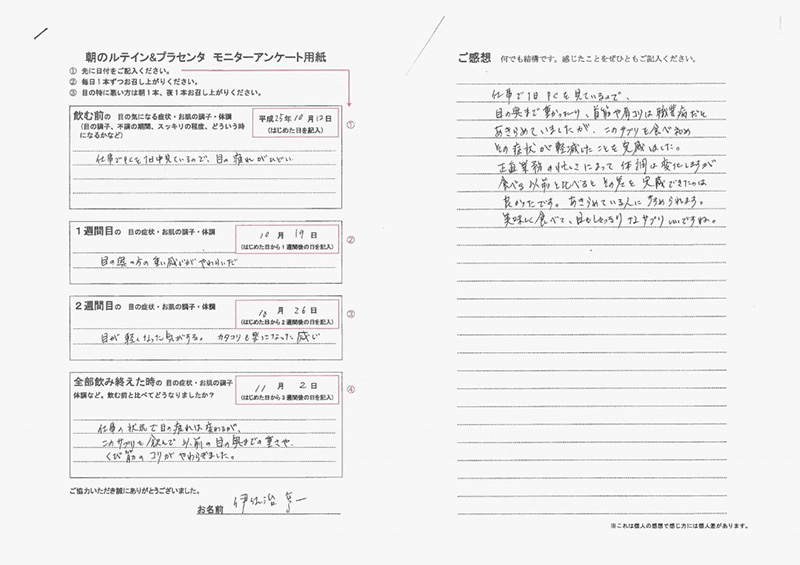 朝のルテイン&プラセンタ モニターアンケート用紙
① 先に日付をご記入ください。
② 毎日1本ずつお召し上がりください。
③ 目の特に悪い方は朝1本、夜1本お召し上がりください。
飲む前の 目の気になる症状・お肌の調子・体調
(目の調子、不調の期間、スッキリの程度、どういう時になるかなど)
平成25年10月12日
(はじめた日を記入)
①
仕事でPCを1日中見ているので、目の疲れがひどい
1週間目の 目の症状・お肌の調子・体調
10月19日
(はじめた日から1週間後の日を記入)
②
目の奥の方の重い感じがやわらいだ
2週間目の 目の症状・お肌の調子・体調
10月26日
(はじめた日から2週間後の日を記入)
③
目が軽くなった気がする。 カタコリも楽になった感じ
全部飲み終えた時の 目の症状・お肌の調子
体調など。飲む前と比べてどうなりましたか?
11月2日
(はじめた日から3週間後の日を記入)
④
仕事の状況で目の疲れは変わるが、
このサプリを飲んで以前の目の奥までの重さや、
くび筋のコリがやわらぎました。
ご協力いただき誠にありがとうございました。
お名前
ご感想 何でも結構です。感じたことをぜひともご記入ください。
仕事で1日PCを見ているので、
目の奥まで重かったり、首筋や肩コリは職業病だと
あきらめていましたが、このサプリを食べ始め
その症状が軽減したことを実感しました。
正直業務の忙しさによって体調は変化しますが
食べる以前と比べるとその差を実感できたのは
良かったです。あきらめている人にすすめられます。
美味しく食べて、目もしゃっきりなサプリいいですね。
※これは個人の感想で感じ方には個人差があります。